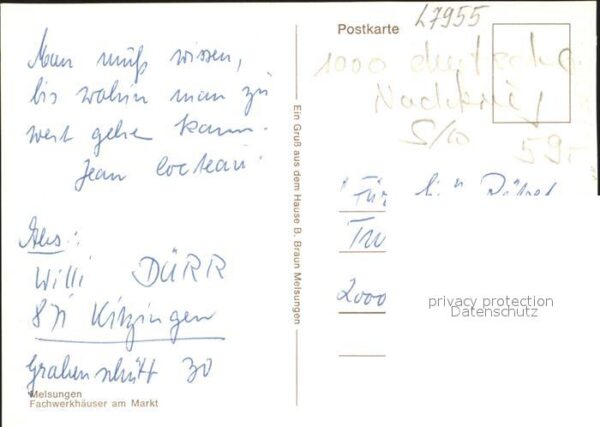 Man muß wissen,
bis wohin man zu
weit gehen kann.
Jean Cocteau
Abs.:
Willi DÜRR
871 Kitzingen
Grabenschütt 30
Melsungen
Fachwerkhäuser am Markt
Ein Gruß aus dem Hause B. Braun Melsungen
Postkarte
L7955
1000
S/W
59,-
Für
2000
privacy protection
Datenschutz